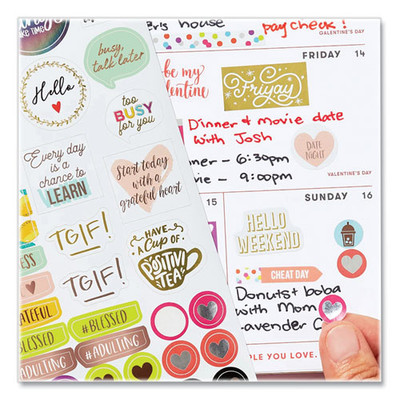 TAKE TIME
busy,
talk later
Hello
too
BUSY
for you
Every day
is a
chance to
LEARN
Start today
with a
grateful heart
TGIF!
TGIF!
HAVE
A CUP OF
POSITIVI
TEA!
#BLESSED
#BLESSED
#ADULTING
#ADULTING
house
pay check!
GALENTINE'S DAY
FRIDAY 14
be my
Friyay
Dinner & movie date
with Josh
DATE
NIGHT
6:30pm
9:00pm
VALENTINE'S DAY
SUNDAY 16
HELLO
WEEKEND
CHEAT DAY
Donuts+ boba
with Mom
YOU LOVE.